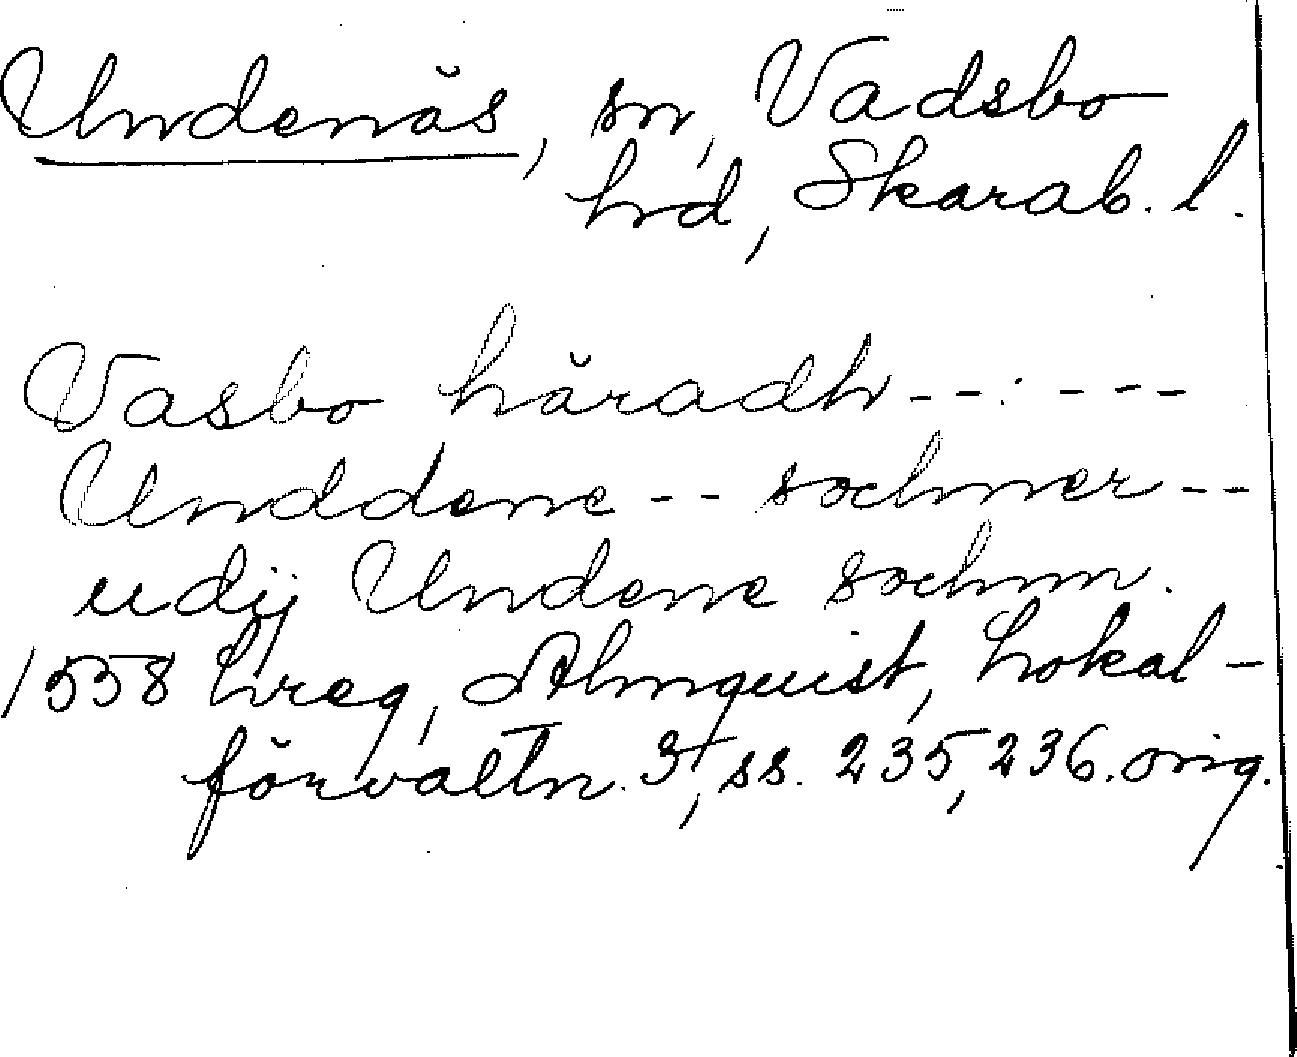 Undenäs, sn, Vadsbo
hrd, Skarab. l.
Vasbo häradh -- . ---
Unddene -- sochner --
udij Undene sochnn.
1558 hreg, Almquist, Lokal-
förvaltn. 3, ss. 235, 236. orig.